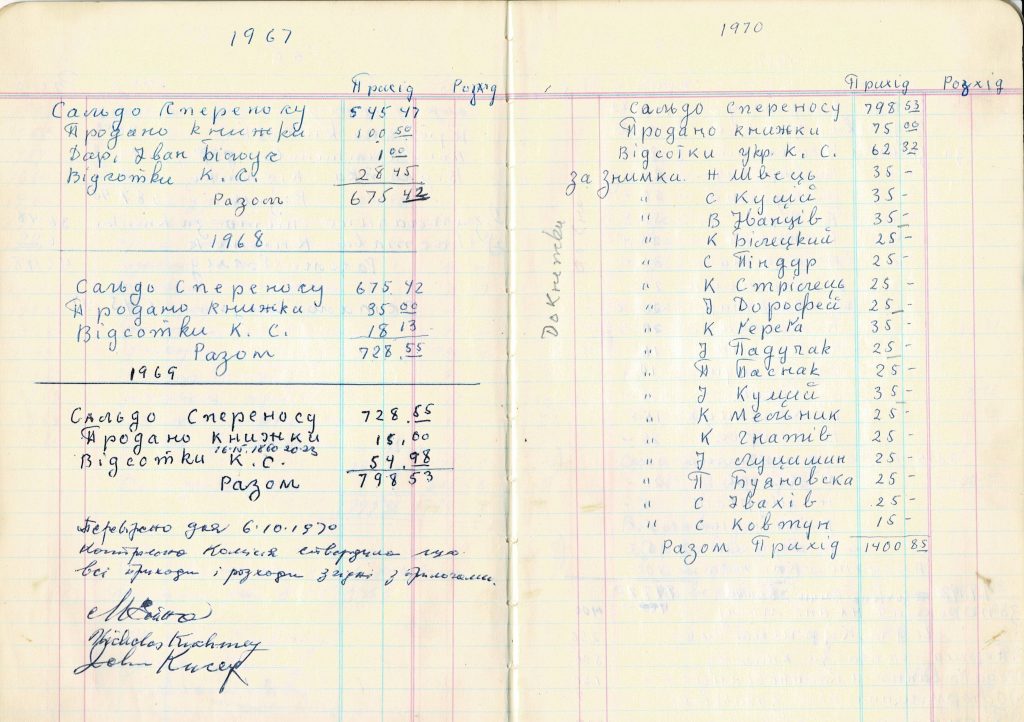 1967
Прихід Розхід
Сальдо Спереносу 545 47
Продано книжки 100 50
Дар. Іван Білоус 1 00
Відсотки К. С. 28 45
Разом 675 42
1968
Сальдо Спереносу 675 42
Продано книжки 35 00
Відсотки К. С. 18 13
Разом 728.55
1969
Сальдо Спереносу 728.55
Продано книжки 15.00
Відсотки К. С. 54.98
Разом 798 53
Перевірено дня 6.10.1970
Контрольна Комісія ствердила що
всі приходи і розходи згідні з
Nicholas
John
1970
Прихід Розхід
Сальдо Спереносу 798 53
Продано книжки 75 00
Відсотки укр. К. С. 62 32
за знимки Н Швець 35 -
" С Куцій 35 -
" В Іванців 35 -
" К Білецкий 25 -
" С Піндур 25 -
" К Стрілець 25 -
" J Доросфей 25 -
" К Ґереґа 35 -
" J Падучак 25 -
" П Паснак 25 -
" J Куций 35 -
" К Мельник 25 -
" К Гнатів 25 -
" J Луцишин 25 -
" П Буяновска 25 -
" С Івахів 25 -
" С Ковтун 15 -
Разом Прихід 1400 85
До Книжки